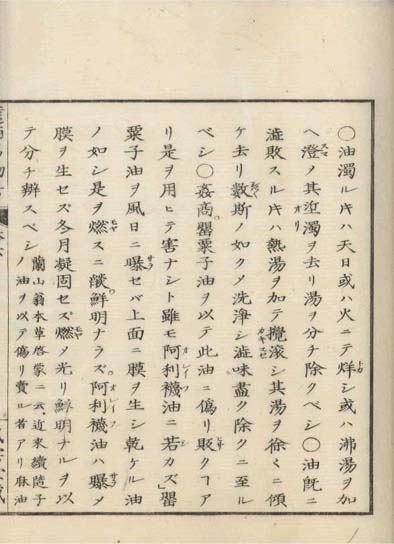 〇油濁ルキハ天日或ハ火ニテ烊シ或ハ沸湯ヲ加
ヘ澄ノ其垽濁ヲ去リ湯ヲ分チ除クベシ〇油旣ニ
澁敗スルキハ熱湯ヲ加テ攪滾シ其湯ヲ徐々ニ傾
ケ去リ數斯ノ如クメ洗浄シ澁味盡ク除クニ至ル
ベシ〇姦商罌粟子油ヲ以テ此油ニ僞リ販クコア
リ是ヲ用ヒテ害ナシト雖モ阿利襪油ニ若カズ」罌
粟子油ヲ風日ニ曝セバ上面ニ膜ヲ生シ乾ケル油
ノ如シ是ヲ燃スニ燄鮮明ナラズ阿利襪油ハ曝メ
膜ヲ生セズ冬月凝固セズ燃メ光リ鮮明ナルヲ以
テ分チ辨スベシ
蘭山翁本草啓蒙ニ云近來續隨子
ノ油ヲ以テ僞リ賣ル者アリ麻油